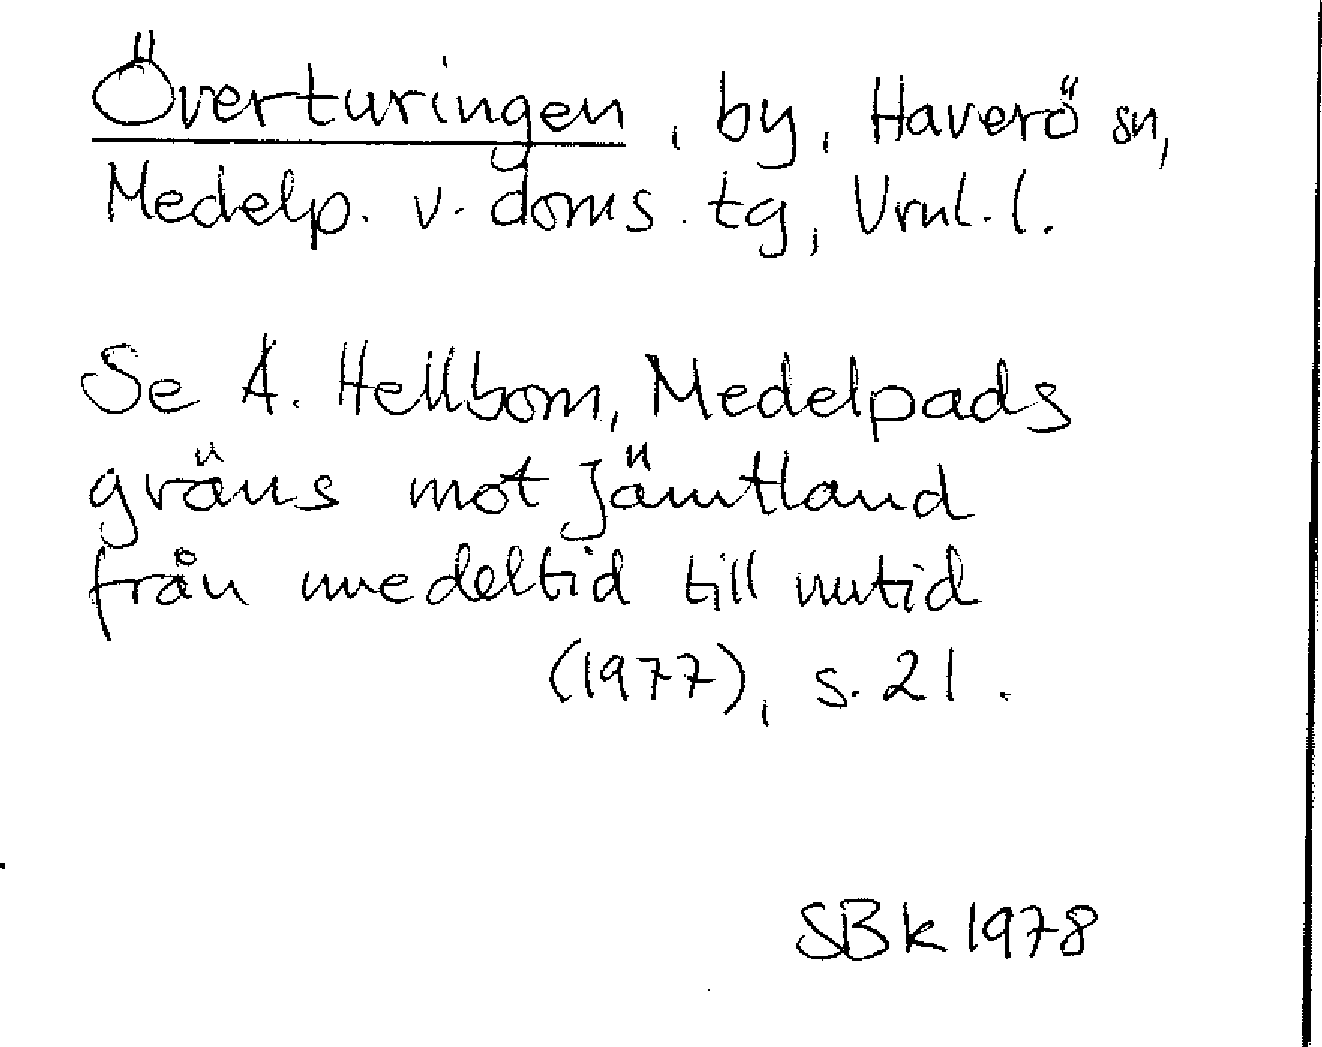 Överturingen, by, Haverö sn,
Medelp. v. doms. tg, Vrnl. l.
Se A. Hellbom, Medelpads
gräns mot Jämtland
från medeltid till nutid
(1977), s. 21.
SBk 1978